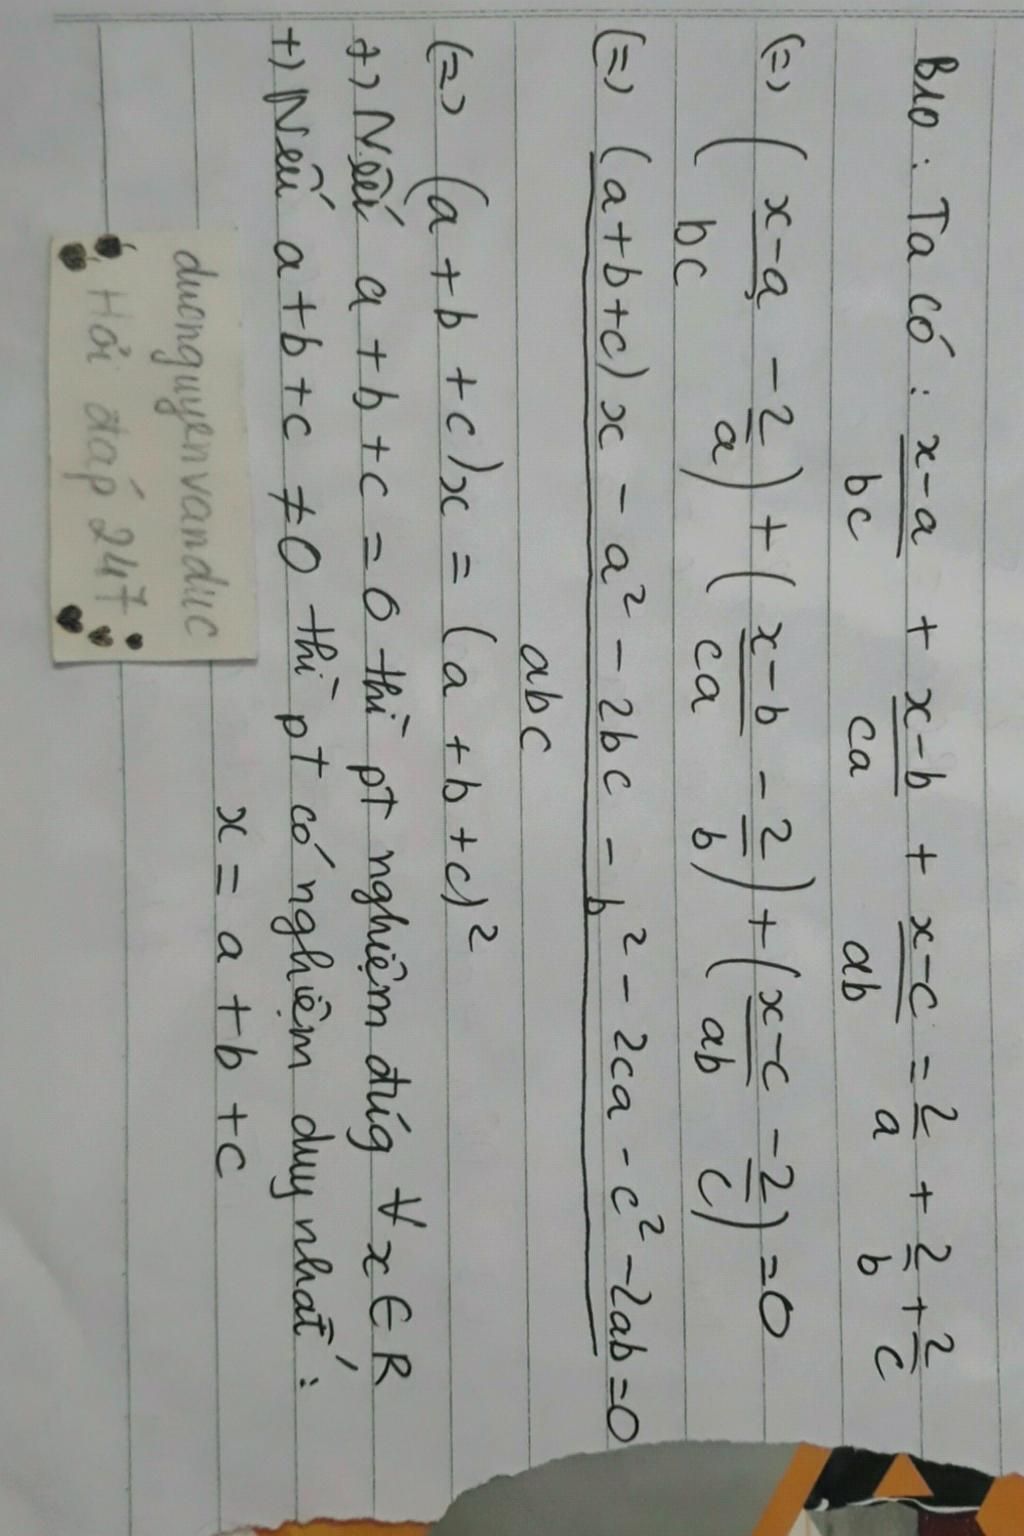 B10: Ta có: x-a/bc + x-b/ca + x-c/ab = 2/a + 2/b + 2/c
(=) (x-a/bc - 2/a) + (x-b/ca - 2/b) + (x-c/ab - 2/c) = 0
(=) (a+b+c)x - a² - 2bc - b² - 2ca - c² - 2ab = 0
abc
(=) (a+b+c)x = (a+b+c)²
+) Nếu a+b+c = 0 thì pt nghiệm đúg ∀ x ∈ R
+) Nếu a+b+c ≠ 0 thì pt có nghiệm duy nhất:
x = a+b+c
duonguyenvanduc
Hỏi đáp 247